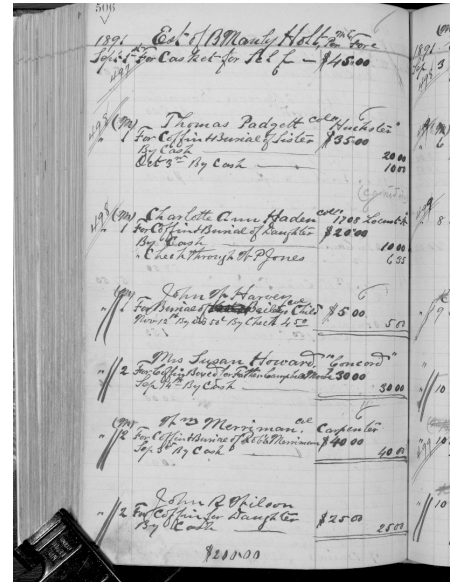 506
1891 Est of B Manly Holt,
Sept 1st For Casket for Self — $45.00
498 (M) Thomas Padgett cold "Huckster"
" 1 For Coffin & Burial of Sister $35.00
By Cash 20 00
Oct 3rd By Cash 10 00
498 (M) Charlotte Ann Haden cold 1708 Locust St
" 1 For Coffin & Burial of Daughter $20.00
By Cash 10 00
" Check through W P Jones 6 35
(M) John W Harvey
" 1 For Burial of Child $5.00
Nov 12th By 50c By Check 4 50 5 00
Mrs Susan Howard, "Concord"
" 2 For Coffin Boxed for 30 00
Sep 14th By Cash 30 00
(M) Wm Merriman, col Carpenter
" 2 For Coffin & Burial of Merriman $40 00
Sep 3rd By Cash 40 00
John R Wilson
" 2 For Coffin for Daughter $25 00
By Cash 25 00
$200.00
1891
Sep 3
" 6
" 8
" 9
" 10
499
" 10
" 10